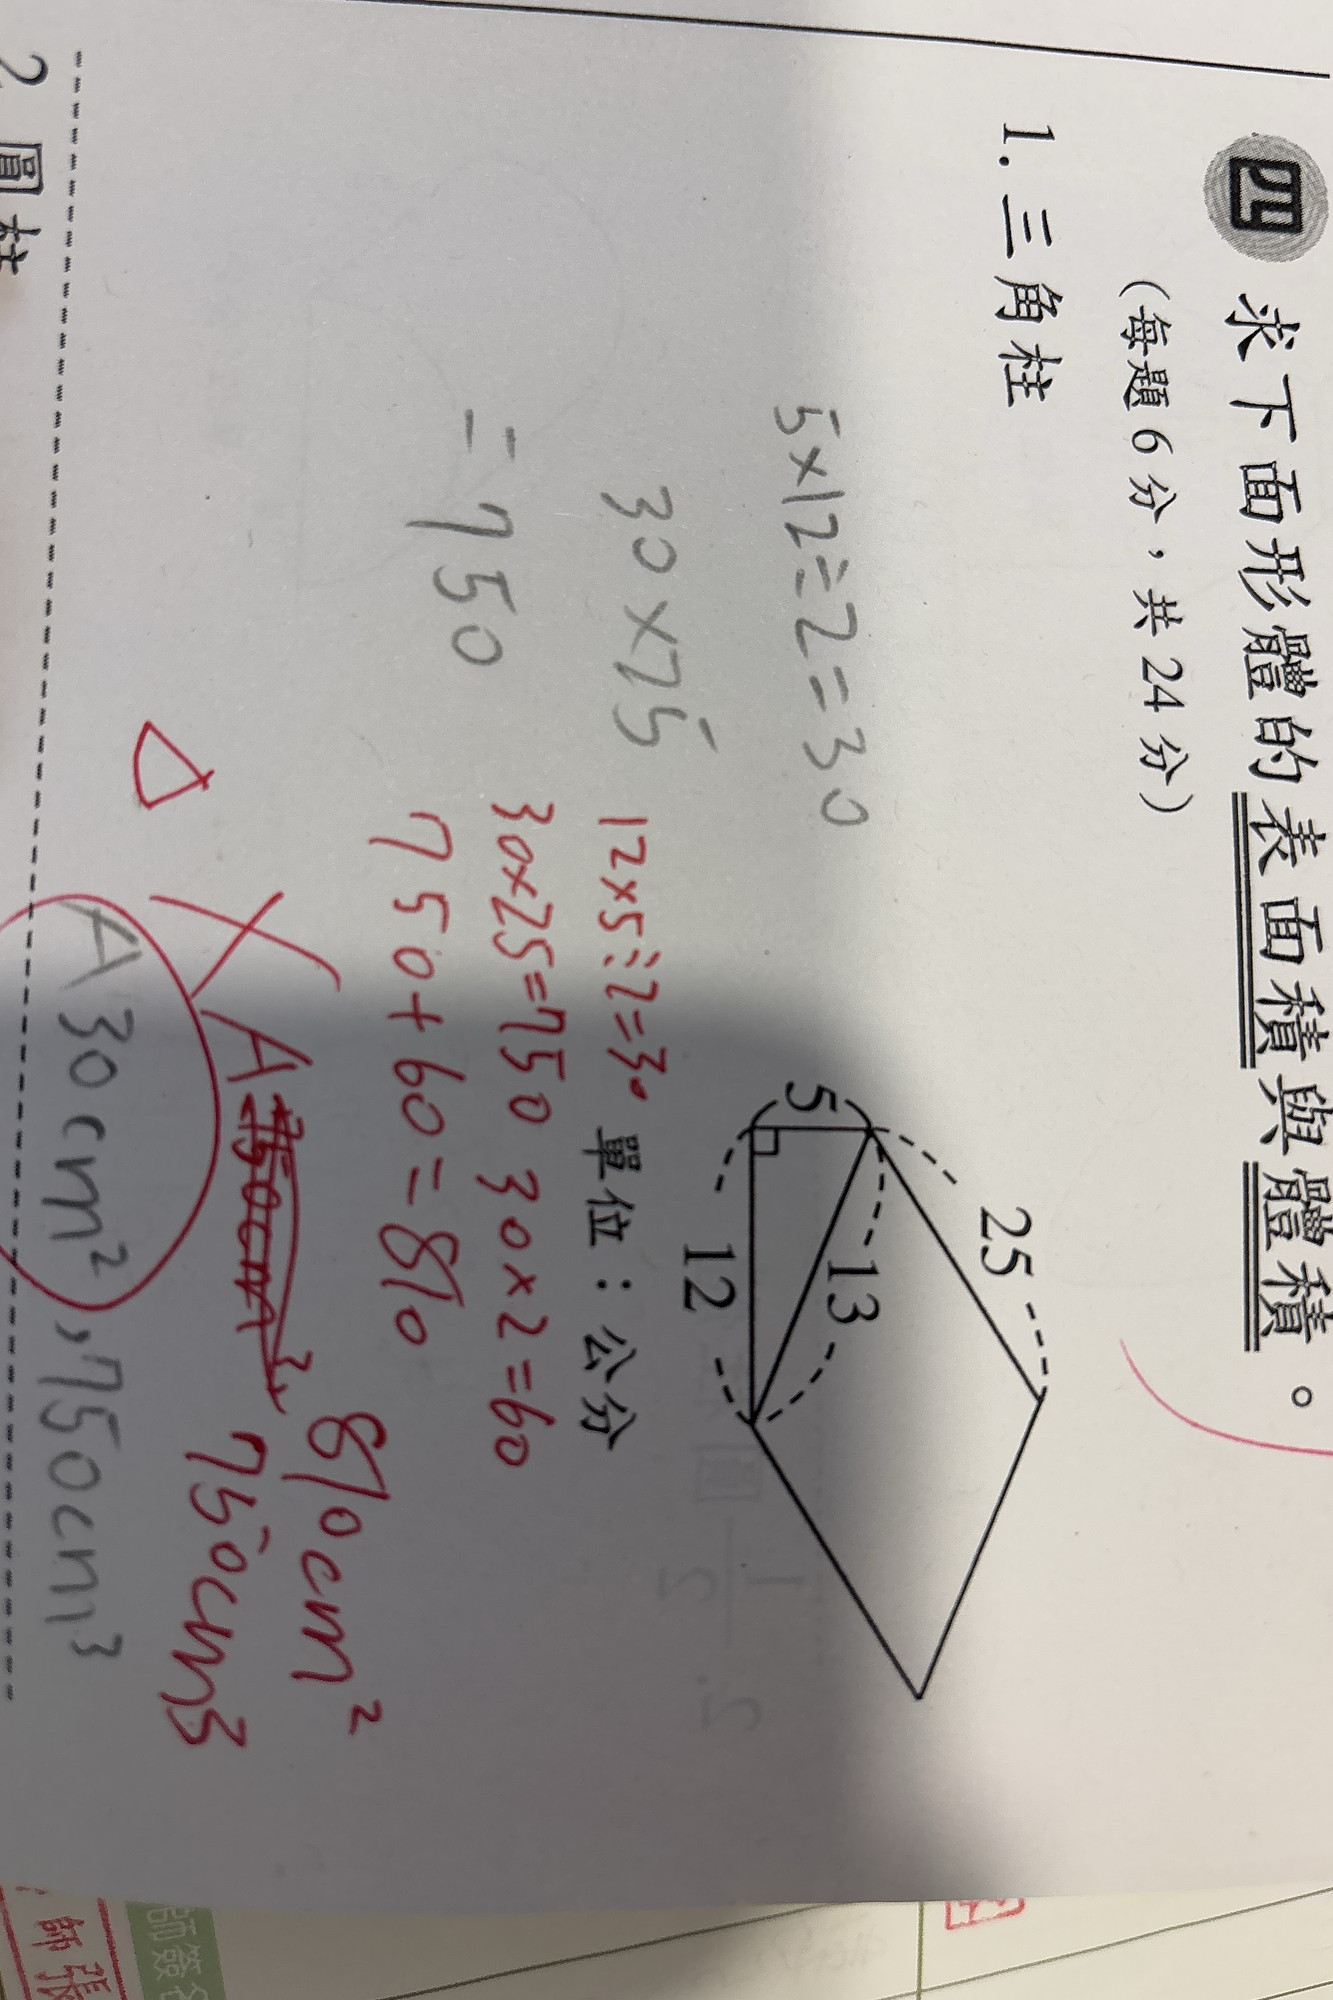 四 求下面形體的表面積與體積。
(每題6分,共24分)
1. 三角柱
25
5
13
12
單位:公分
5×12÷2=30
30×25
=750
12×5÷2=30
30×25=750 30×2=60
750+60=810
A 750cm² 810cm²
750cm3
A 30cm², 750cm³
2 圓柱
師簽名
師張